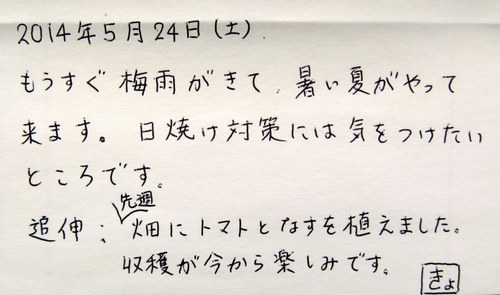 2014年5月24日(土).
もうすぐ梅雨がきて、暑い夏がやって
来ます。日焼け対策には気をつけたい
ところです。
先週
追伸:畑にトマトとなすを植えました。
収穫が今から楽しみです。
きょ